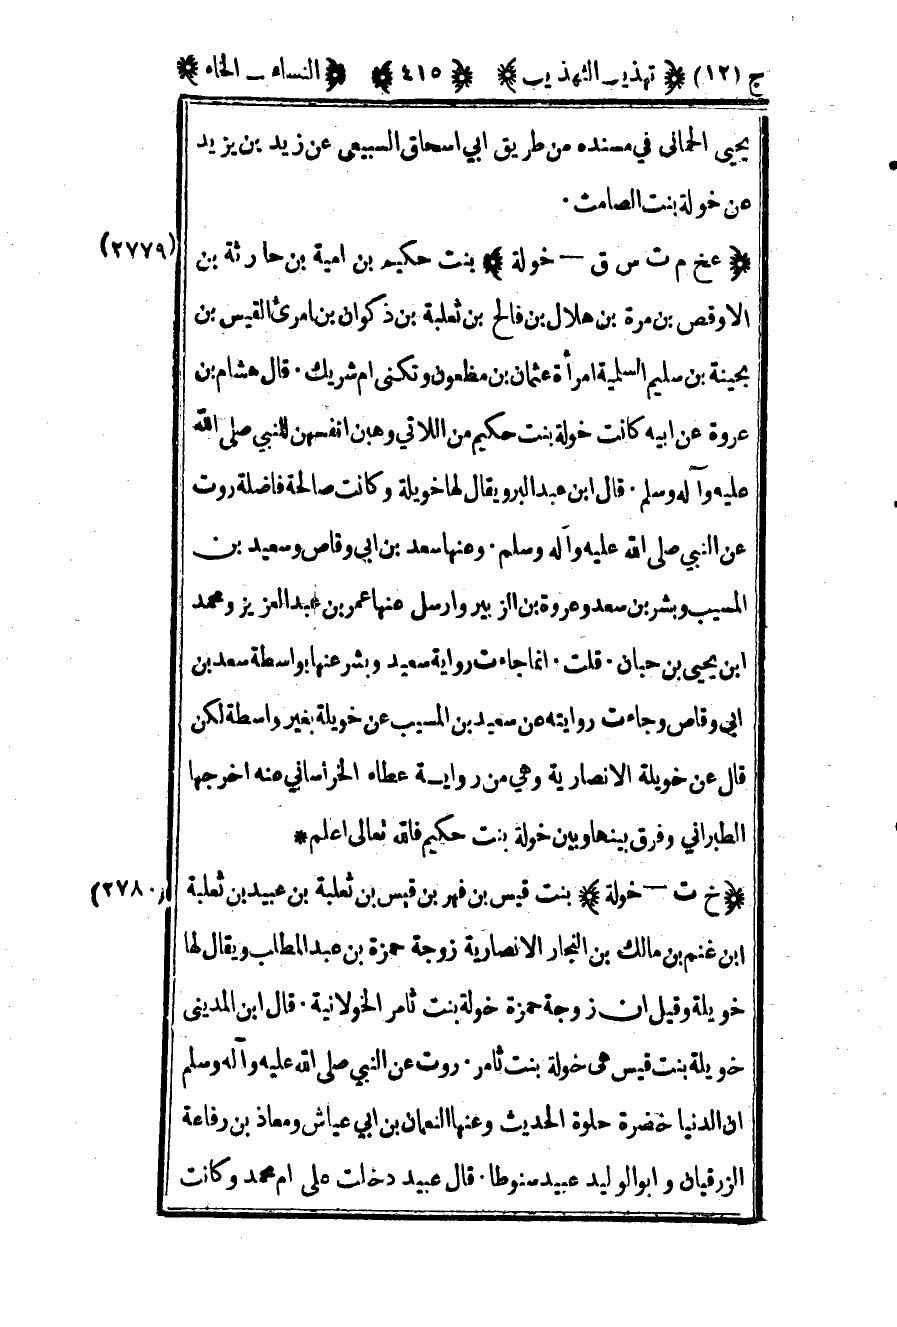 ج (١٢) ﴿ تهذيب التهذيب ﴾ ﴿ ٤١٥ ﴾ ﴿ النساء ــ الخاء ﴾
يحيى الحمانى في مسنده من طريق ابي اسحاق السبيعى عن زيد بن يزيد
عن خولة بنت الصامت ٠
(٢٧٧٩) ﴿ عخ م ت س ق — خولة ﴾ بنت حكيم بن امية بن حارثة بن
الاوقص بن مرة بن هلال بن فالج بن ثعلبة بن ذكوان بن امرئ القيس بن
بحينة بن سليم السلمية امرأة عثمان بن مظعون وتكنى ام شريك ٠ قال هشام بن
عروة عن ابيه كانت خولة بنت حكيم من اللاتي وهبن انفسهن للنبي صلى الله
عليه وآله وسلم ٠ قال ابن عبد البر ويقال لها خويلة وكانت صالحة فاضلة روت
عن النبي صلى الله عليه وآله وسلم ٠ وعنها سعد بن ابي وقاص وسعيد بن
المسيب وبشر بن سعد وعروة بن الزبير وارسل عنها عمر بن عبد العزيز ومحمد
ابن يحيى بن حبان ٠ قلت ٠ انما جاءت رواية سعيد وبشر عنها بواسطة سعد بن
ابي وقاص وجاءت روايته عن سعيد بن المسيب عن خويلة بغير واسطة لكن
قال عن خويلة الانصارية وهي من رواية عطاء الخراساني عنه اخرجها
الطبراني وفرق بينها وبين خولة بنت حكيم فالله تعالى اعلم *
(٢٧٨٠) ﴿ خ ت — خولة ﴾ بنت قيس بن فهر بن قيس بن ثعلبة بن عبيد بن ثعلبة
ابن غنم بن مالك بن النجار الانصارية زوجة حمزة بن عبد المطلب ويقال لها
خويلة وقيل ان زوجة حمزة خولة بنت ثامر الخولانية ٠ قال ابن المدينى
خويلة بنت قيس هى خولة بنت ثامر ٠ روت عن النبي صلى الله عليه وآله وسلم
ان الدنيا خضرة حلوة الحديث وعنها النعمان بن ابي عياش ومعاذ بن رفاعة
الزرقيان و ابو الوليد عبيد سنوطا ٠ قال عبيد دخلت على ام محمد وكانت